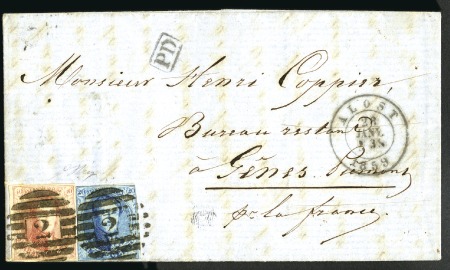 PD
Monsieur Henri Coppier,
Bureau restant
à Gênes
pr la france
ALOST
28
JANV.
1859
2 2